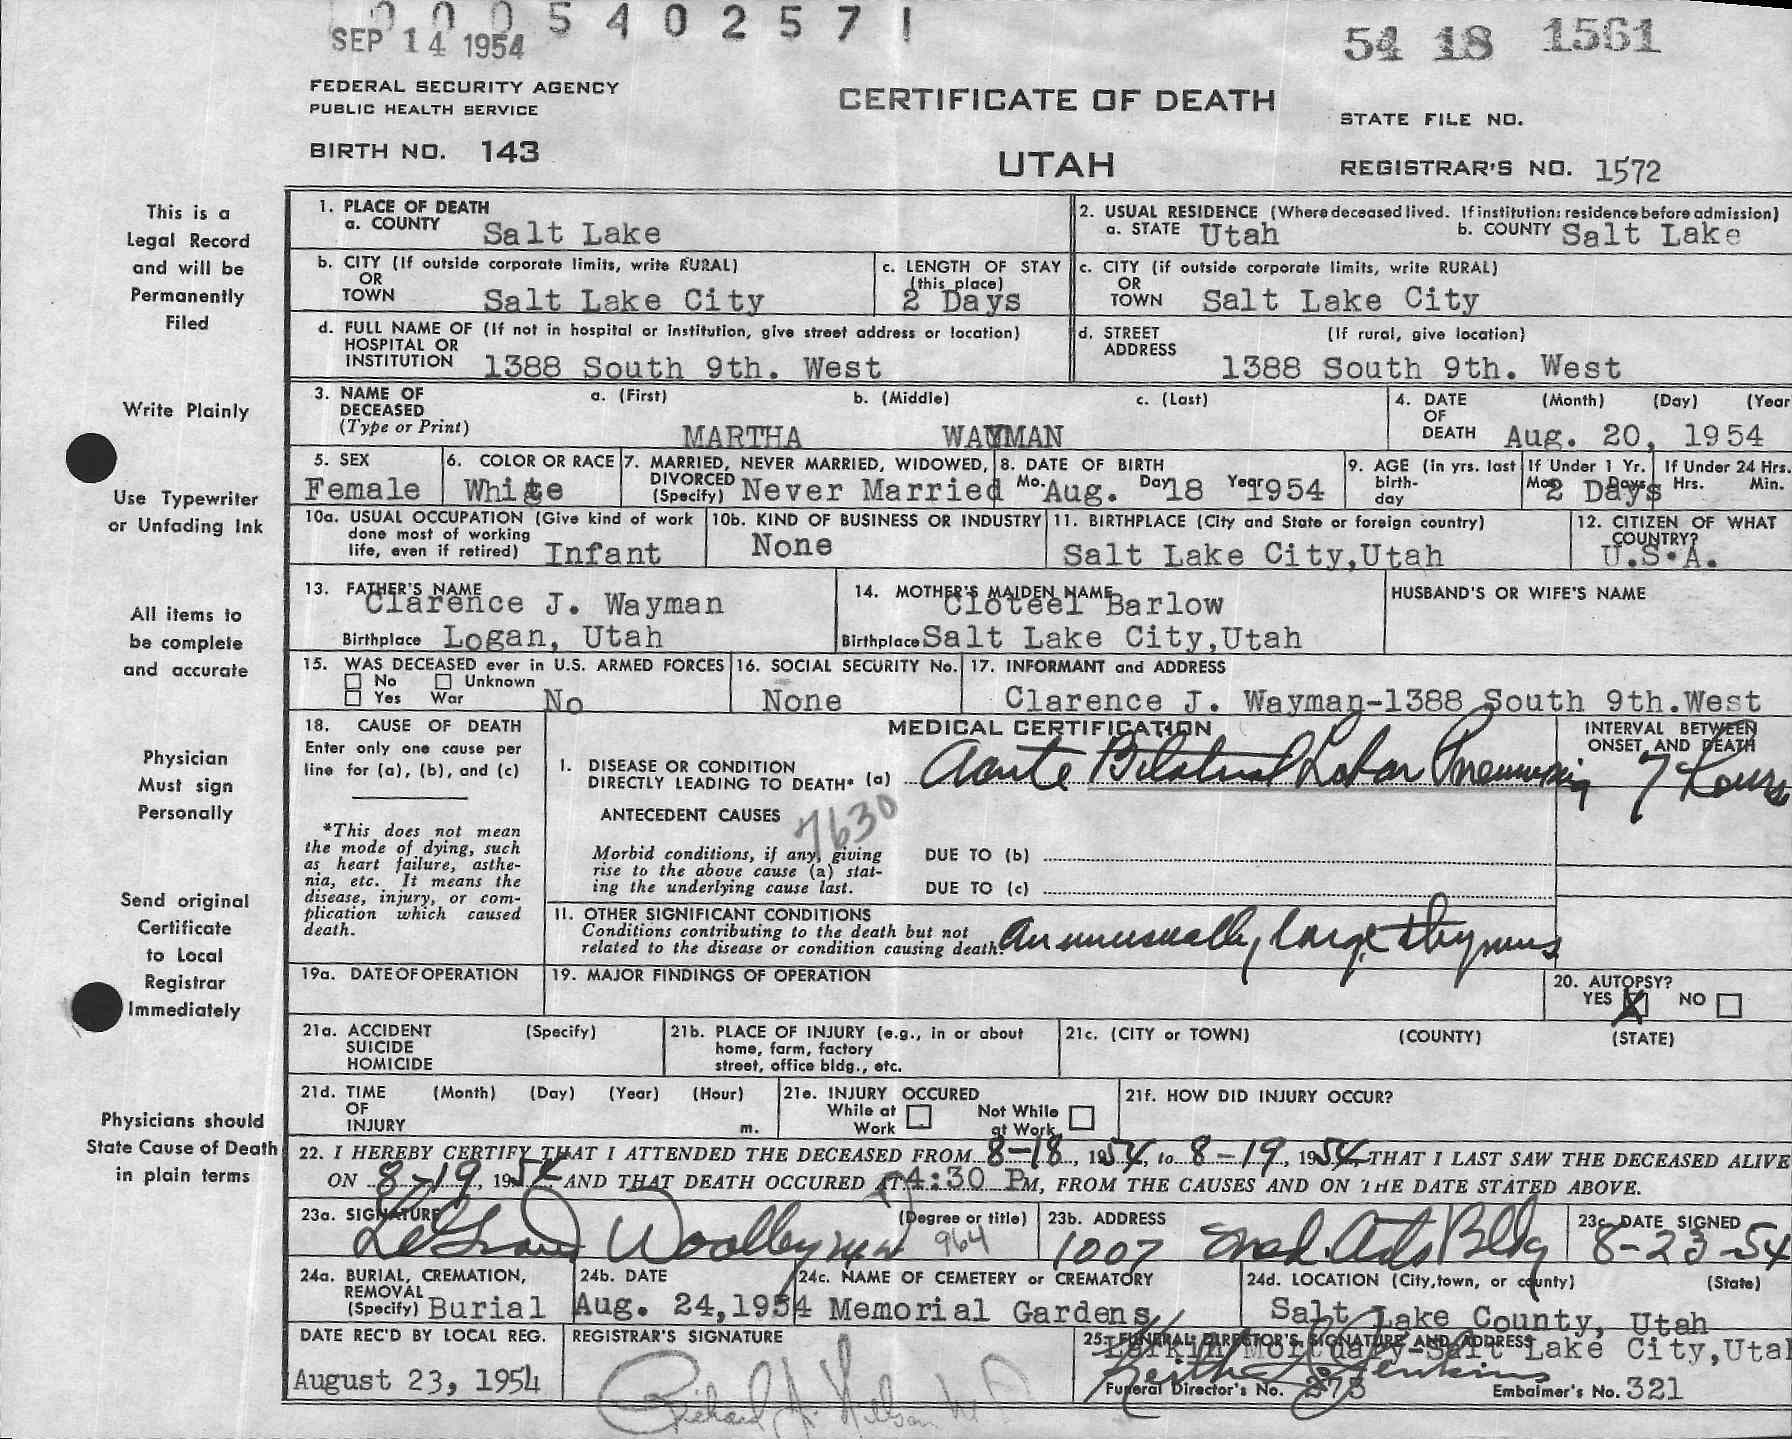 0 0 0 5 4 0 2 5 7 1
SEP 14 1954
54 18 1561
FEDERAL SECURITY AGENCY
PUBLIC HEALTH SERVICE
CERTIFICATE OF DEATH
STATE FILE NO.
BIRTH NO. 143
UTAH
REGISTRAR'S NO. 1572
This is a
Legal Record
and will be
Permanently
Filed
Write Plainly
Use Typewriter
or Unfading Ink
All items to
be complete
and accurate
Physician
Must sign
Personally
Send original
Certificate
to Local
Registrar
Immediately
Physicians should
State Cause of Death
in plain terms
1. PLACE OF DEATH
a. COUNTY Salt Lake
2. USUAL RESIDENCE (Where deceased lived. If institution: residence before admission)
a. STATE Utah b. COUNTY Salt Lake
b. CITY (If outside corporate limits, write RURAL)
OR
TOWN Salt Lake City
c. LENGTH OF STAY
(this place)
2 Days
c. CITY (if outside corporate limits, write RURAL)
OR
TOWN Salt Lake City
d. FULL NAME OF (If not in hospital or institution, give street address or location)
HOSPITAL OR
INSTITUTION 1388 South 9th. West
d. STREET (If rural, give location)
ADDRESS
1388 South 9th. West
3. NAME OF a. (First) b. (Middle) c. (Last)
DECEASED
(Type or Print) MARTHA WAYMAN
4. DATE (Month) (Day) (Year
OF
DEATH Aug. 20, 1954
5. SEX
Female
6. COLOR OR RACE
White
7. MARRIED, NEVER MARRIED, WIDOWED,
DIVORCED
(Specify) Never Married
8. DATE OF BIRTH
Mo. Aug. Day 18 Year 1954
9. AGE (in yrs. last
birth-
day
If Under 1 Yr.
Mos. 2 Days
If Under 24 Hrs.
Hrs. Min.
10a. USUAL OCCUPATION (Give kind of work
done most of working
life, even if retired) Infant
10b. KIND OF BUSINESS OR INDUSTRY
None
11. BIRTHPLACE (City and State or foreign country)
Salt Lake City,Utah
12. CITIZEN OF WHAT
COUNTRY?
U.S.A.
13. FATHER'S NAME
Clarence J. Wayman
Birthplace Logan, Utah
14. MOTHER'S MAIDEN NAME
Cloteel Barlow
Birthplace Salt Lake City,Utah
HUSBAND'S OR WIFE'S NAME
15. WAS DECEASED ever in U.S. ARMED FORCES
No Unknown
Yes War No
16. SOCIAL SECURITY No.
None
17. INFORMANT and ADDRESS
Clarence J. Wayman-1388 South 9th.West
18. CAUSE OF DEATH
Enter only one cause per
line for (a), (b), and (c)
*This does not mean
the mode of dying, such
as heart failure, asthe-
nia, etc. It means the
disease, injury, or com-
plication which caused
death.
MEDICAL CERTIFICATION
INTERVAL BETWEEN
ONSET AND DEATH
I. DISEASE OR CONDITION
DIRECTLY LEADING TO DEATH* (a) Acute Bilateral Lobar Pneumonia 7 Hours
ANTECEDENT CAUSES
7630
Morbid conditions, if any, giving
rise to the above cause (a) stat-
ing the underlying cause last.
DUE TO (b)
DUE TO (c)
II. OTHER SIGNIFICANT CONDITIONS
Conditions contributing to the death but not
related to the disease or condition causing death. An unusually large thymus
19a. DATE OF OPERATION
19. MAJOR FINDINGS OF OPERATION
20. AUTOPSY?
YES X NO
21a. ACCIDENT (Specify)
SUICIDE
HOMICIDE
21b. PLACE OF INJURY (e.g., in or about
home, farm, factory
street, office bldg., etc.
21c. (CITY or TOWN) (COUNTY) (STATE)
21d. TIME (Month) (Day) (Year) (Hour)
OF
INJURY m.
21e. INJURY OCCURED
While at Not While
Work at Work
21f. HOW DID INJURY OCCUR?
22. I HEREBY CERTIFY THAT I ATTENDED THE DECEASED FROM 8-18, 1954, to 8-19, 1954, THAT I LAST SAW THE DECEASED ALIVE
ON 8-19, 1954 AND THAT DEATH OCCURED AT 4:30 P M, FROM THE CAUSES AND ON THE DATE STATED ABOVE.
23a. SIGNATURE (Degree or title)
LeGrand Woolley M.D. 964
23b. ADDRESS
1007 Med. Arts Bldg
23c. DATE SIGNED
8-23-54
24a. BURIAL, CREMATION,
REMOVAL
(Specify) Burial
24b. DATE
Aug. 24,1954
24c. NAME OF CEMETERY or CREMATORY
Memorial Gardens
24d. LOCATION (City,town, or county) (State)
Salt Lake County, Utah
DATE REC'D BY LOCAL REG.
August 23, 1954
REGISTRAR'S SIGNATURE
Richard
25. FUNERAL DIRECTOR'S SIGNATURE AND ADDRESS
Larkin Mortuary-Salt Lake City,Utah
Jenkins
Funeral Director's No. 273 Embalmer's No. 321